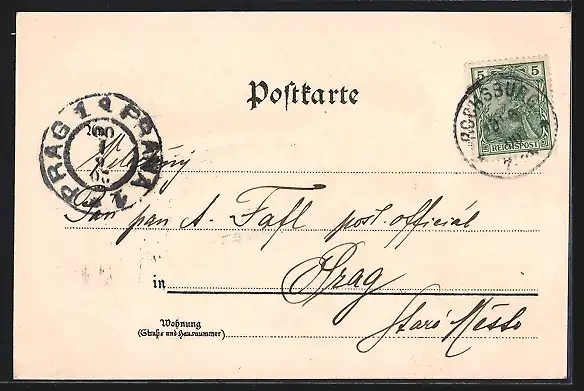 Postkarte
5 5
REICHSPOST
ROCHSBURG
PRAG 1 PRAHA 1
Pan pan A. Fafl post. official
in Prag
Staré Město
Wohnung
(Straße und Hausnummer)